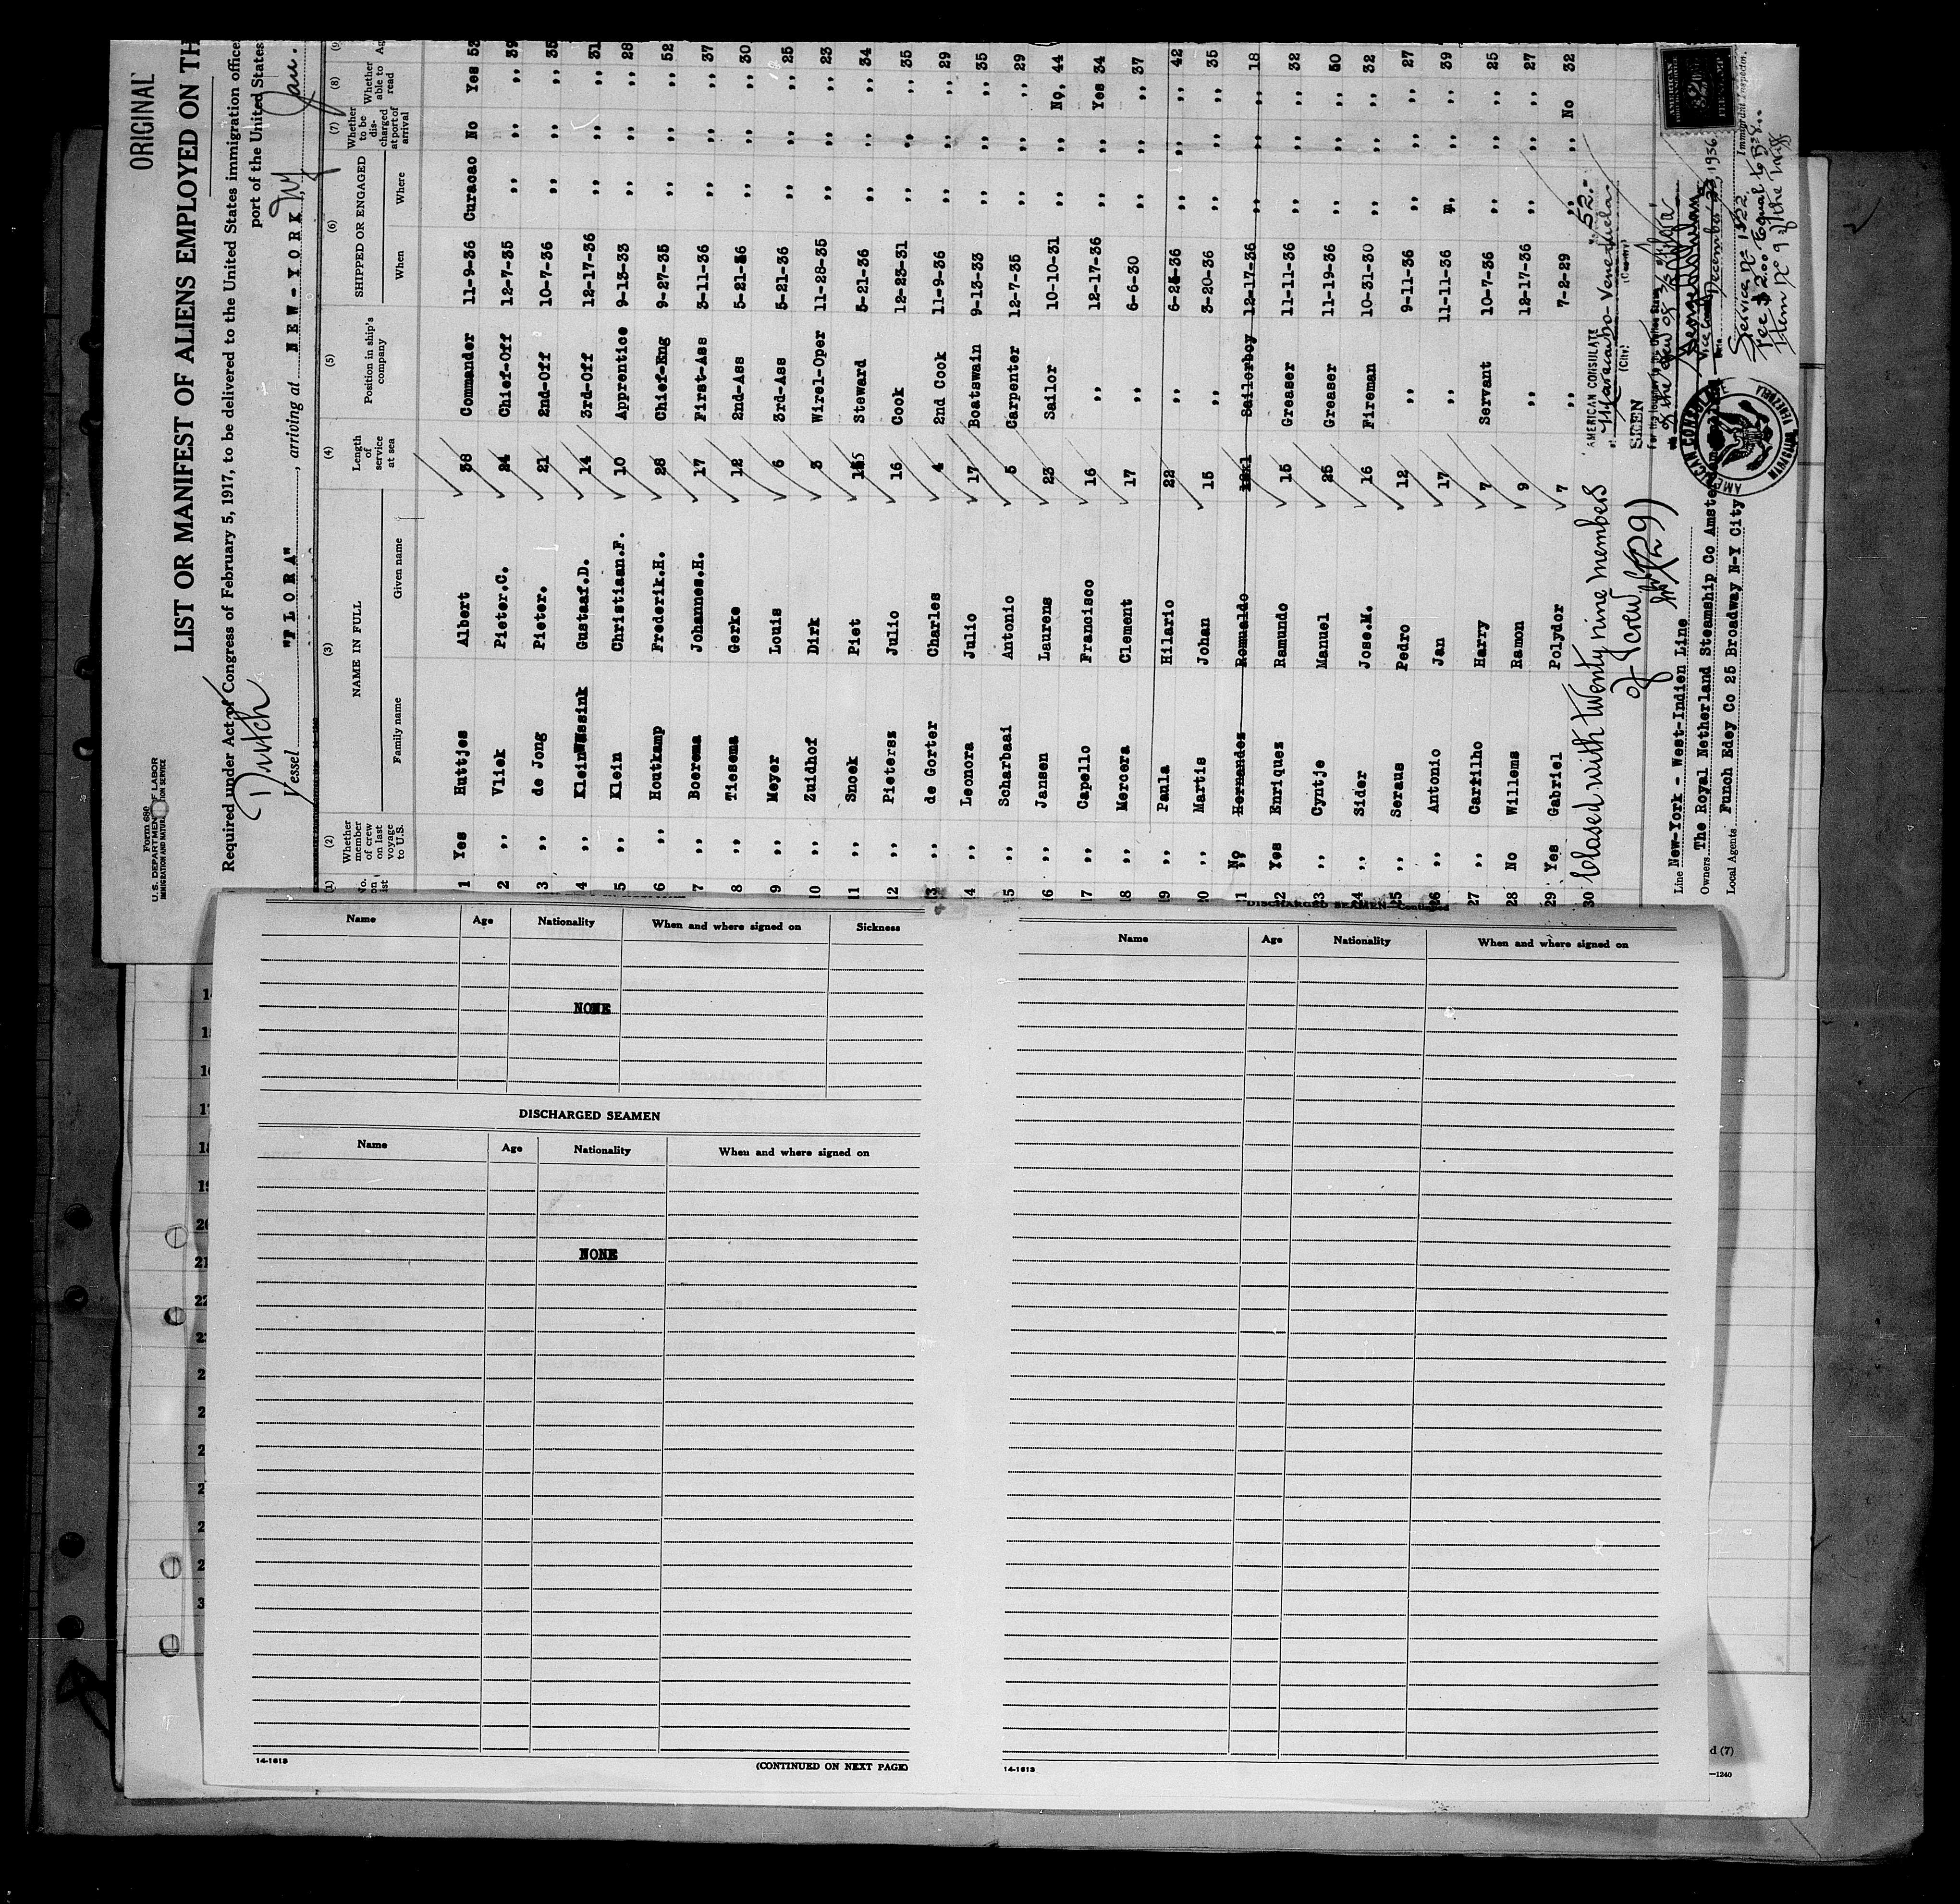 ORIGINAL
Form 680
U.S. DEPARTMENT OF LABOR
LIST OR MANIFEST OF ALIENS EMPLOYED ON TH
Required under Act of Congress of February 5, 1917, to be delivered to the United States immigration office
port of the United States
Dutch
Vessel "FLORA", arriving at NEW-YORK NY Jan.
(1) No. on list
(2) Whether member of crew on last voyage to U.S.
(3) NAME IN FULL
Family name
Given name
(4) Length of service at sea
(5) Position in ship's company
(6) SHIPPED OR ENGAGED
When
Where
(7) Whether to be discharged at port of arrival
(8) Whether able to read
(9 Ag
1 Yes Huttjes Albert 38 Commander 11-9-36 Curacao No Yes 53
2 ,, Vliek Pieter.C. 24 Chief-Off 12-7-35 ,, ,, ,, 39
3 ,, de Jong Pieter. 21 2nd-Off 10-7-36 ,, ,, ,, 35
4 ,, Gustaaf.D. 14 3rd-Off 12-17-36 ,, ,, ,, 31
5 ,, Klein Christiaan.F. 10 Apprentice 9-13-33 ,, ,, ,, 28
6 ,, Houtkamp Frederik.H. 28 Chief-Eng 9-27-35 ,, ,, ,, 52
7 ,, Boerema Johannes.H. 17 First-Ass 3-11-36 ,, ,, ,, 37
8 ,, Tiesema Gerke 12 2nd-Ass 5-21-36 ,, ,, ,, 30
9 ,, Meyer Louis 6 3rd-Ass 5-21-36 ,, ,, ,, 25
10 ,, Zuidhof Dirk 3 Wirel-Oper 11-28-35 ,, ,, ,, 23
11 ,, Snoek Piet Steward 5-21-36 ,, ,, ,, 34
12 ,, Pietersz Julio 16 Cook 12-23-31 ,, ,, ,, 35
13 ,, de Gorter Charles 4 2nd Cook 11-9-36 ,, ,, ,, 29
14 ,, Leonora Julio 17 Boatswain 9-13-33 ,, ,, ,, 35
15 ,, Scharbaai Antonio 5 Carpenter 12-7-35 ,, ,, ,, 29
16 ,, Jansen Laurens 23 Sailor 10-10-31 ,, ,, No. 44
17 ,, Capello Francisco 16 ,, 12-17-36 ,, ,, Yes 34
18 ,, Mercera Clement 17 ,, 6-6-30 ,, ,, ,, 37
19 ,, Paula Hilario 22 ,, ,, ,, ,, 42
20 ,, Martis Johan 15 ,, 3-20-36 ,, ,, ,, 35
21 No Hernandez Romualdo Sailorboy 12-17-36 ,, ,, ,, 18
22 Yes Enriquez Ramundo 15 Greaser 11-11-36 ,, ,, ,, 32
23 ,, Cyntje Manuel 25 Greaser 11-19-36 ,, ,, ,, 50
24 ,, Sider Jose.M. 16 Fireman 10-31-30 ,, ,, ,, 32
25 ,, Seraus Pedro 12 ,, 9-11-36 ,, ,, ,, 27
26 ,, Antonio Jan 17 ,, 11-11-36 ,, ,, ,, 39
27 ,, Carfilho Harry 7 Servant 10-7-36 ,, ,, ,, 25
28 No Willems Ramon 9 ,, 12-17-36 ,, ,, ,, 27
29 Yes Gabriel Polydor 7 ,, 7-2-29 ,, ,, No 32
30 Closed with twenty nine members
of crew (29)
AMERICAN CONSULATE
Maracaibo - Venezuela
(City) (Country)
SEEN
Vice Consul
December 23, 1936
Service No 1522
Fee $2.00 Equal to Bs
Item No 9 of the Tariff
Immigrant Inspector.
Line New-York - West-Indien Line
Owners The Royal Netherland Steamship Co Amsterdam
Local Agents Funch Edey Co 25 Broadway N-Y City
Name Age Nationality When and where signed on Sickness
NONE
DISCHARGED SEAMEN
Name Age Nationality When and where signed on
NONE
14-1613
(CONTINUED ON NEXT PAGE)
DISCHARGED SEAMEN—Continued
Name Age Nationality When and where signed on
14-1613
d (7)
—1240